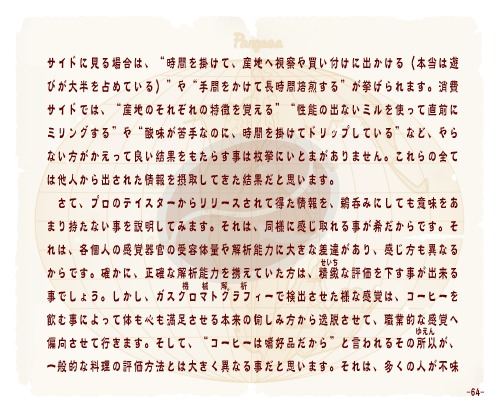 Pangaea
サイドに見る場合は、“時間を掛けて、産地へ視察や買い付けに出かける（本当は遊
びが大半を占めている）”や“手間をかけて長時間焙煎する”が挙げられます。消費
サイドでは、“産地のそれぞれの特徴を覚える”“性能の出ないミルを使って直前に
ミリングする”や“酸味が苦手なのに、時間を掛けてドリップしている”など、やら
ない方がかえって良い結果をもたらす事は枚挙にいとまがありません。これらの全て
は他人から出された情報を摂取してきた結果だと思います。
さて、プロのテイスターからリリースされて得た情報を、鵜呑みにしても意味をあ
まり持たない事を説明してみます。それは、同様に感じ取れる事が希だからです。そ
れは、各個人の感覚器官の受容体量や解析能力に大きな差違があり、感じ方も異なる
せいち
からです。確かに、正確な解析能力を携えていた方は、精緻な評価を下す事が出来る
機械解析
事でしょう。しかし、ガスクロマトグラフィーで検出させた様な感覚は、コーヒーを
飲む事によって体も心も満足させる本来の愉しみ方から逸脱させて、職業的な感覚へ
ゆえん
偏向させて行きます。そして、“コーヒーは嗜好品だから”と言われるその所以が、
一般的な料理の評価方法とは大きく異なる事だと思います。それは、多くの人が不味
-64-